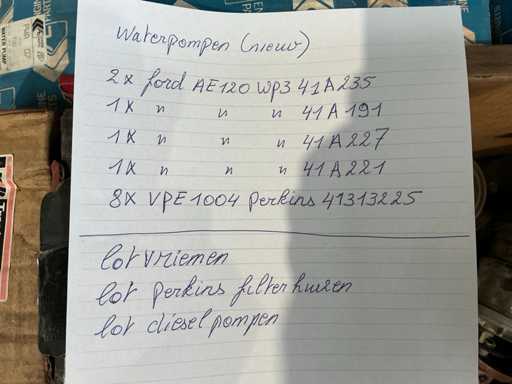 Waterpompen (nieuw)
2x ford AE120 WP3 41A235
1x " " " 41A191
1x " " " 41A227
1x " " " 41A221
8x VPE1004 Perkins 41313225
lot vriemen
lot perkins filterhuizen
lot diesel pompen